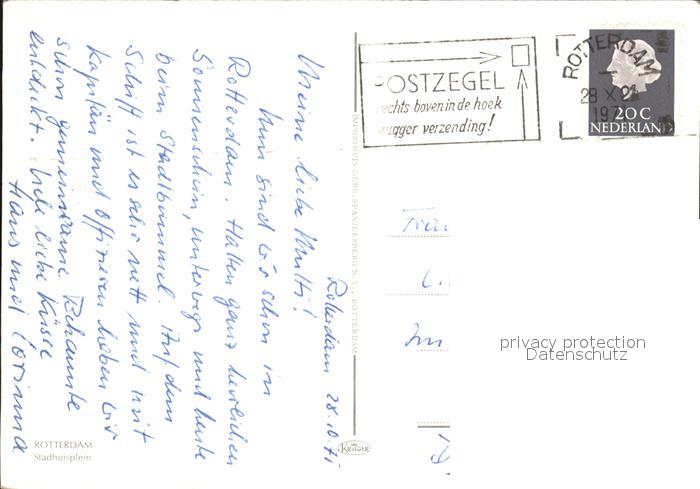 Rotterdam 28.10.71
Meine liebe Mutti!
Nun sind wir schon in
Rotterdam. Hatten ganz herrlichen
Sonnenschein, unterwegs und heute
beim Stadtbummel. Auf dem
Schiff ist es sehr nett und mit
Kapitän und Offizieren haben wir
schon gemeinsame Bekannte
entdeckt. Viele liebe Küsse
Hans und Corinna
ROTTERDAM
Stadhuisplein
IMPORTHUIS GEBR. SPANJERSBERG N.V., ROTTERDAM
KRÜGER
POSTZEGEL
rechts boven in de hoek
vlugger verzending!
ROTTERDAM
28 X 
20 C
NEDERLAND
privacy protection
Datenschutz